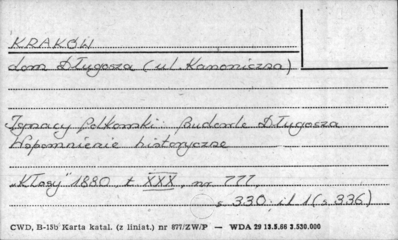 KRAKÓW
dom Długosza (ul. Kanoniczna)
Ignacy Polkowski: Budowle Długosza
Wspomnienie historyczne
„Kłosy" 1880 t XXX, nr. 777,
s 330; il 1 (s. 336)
CWD, B-15b Karta katal. (z liniat.) nr 877/ZW/P — WDA 29 13.5.66 3.530.000